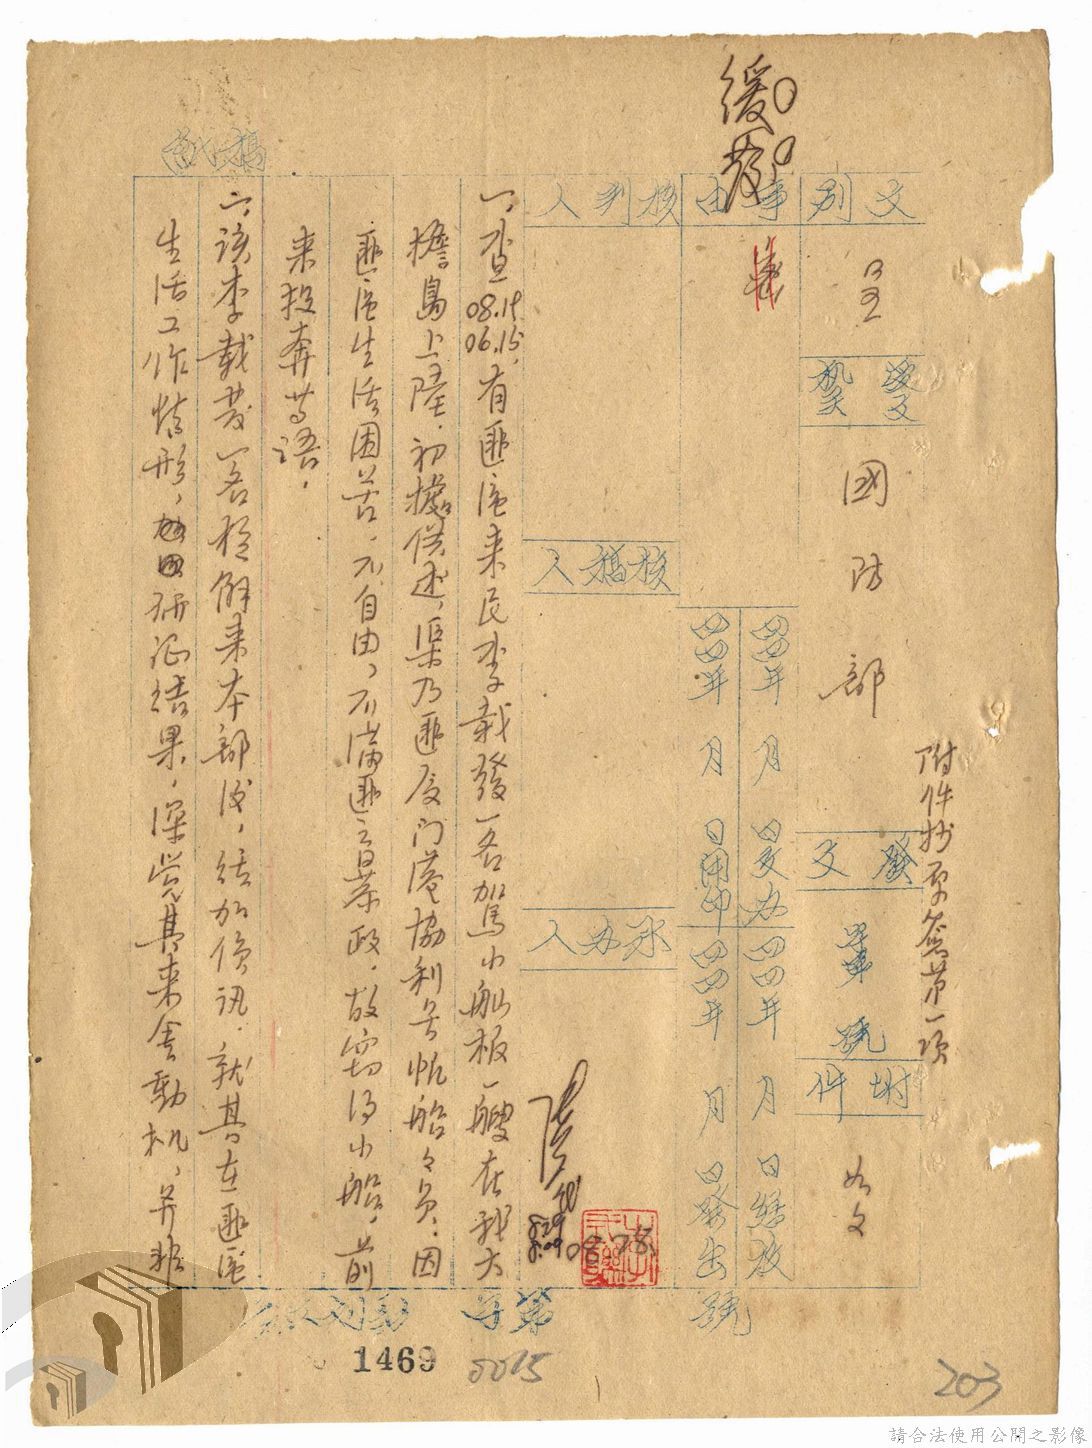 緩發
稿
文別
呈
受文機關
國防部
發文
字第 號
附件
如文
附件抄原簽第一項
事由
四四年 月 日交办
四四年 月 日繕校
四四年 月 日用印
四四年 月 日發出
核判人
核稿人
承办人
08.28.
一、查08.19.
06.15.有匪區來民李載發一名駕小舢板一艘在我大
擔島上陸，初據供述，渠乃匪廈门港協利号帆船々員，因
匪區生活困苦，不自由，不滿匪之暴政，故竊得小船，前
来投奔等語。
二、該李載发一名經解来本部後，經加偵訊，就其在匪區
生活工作情形，研证結果，深覺其来金動机，并非
字第 號
1469
0015
203
請合法使用公開之影像